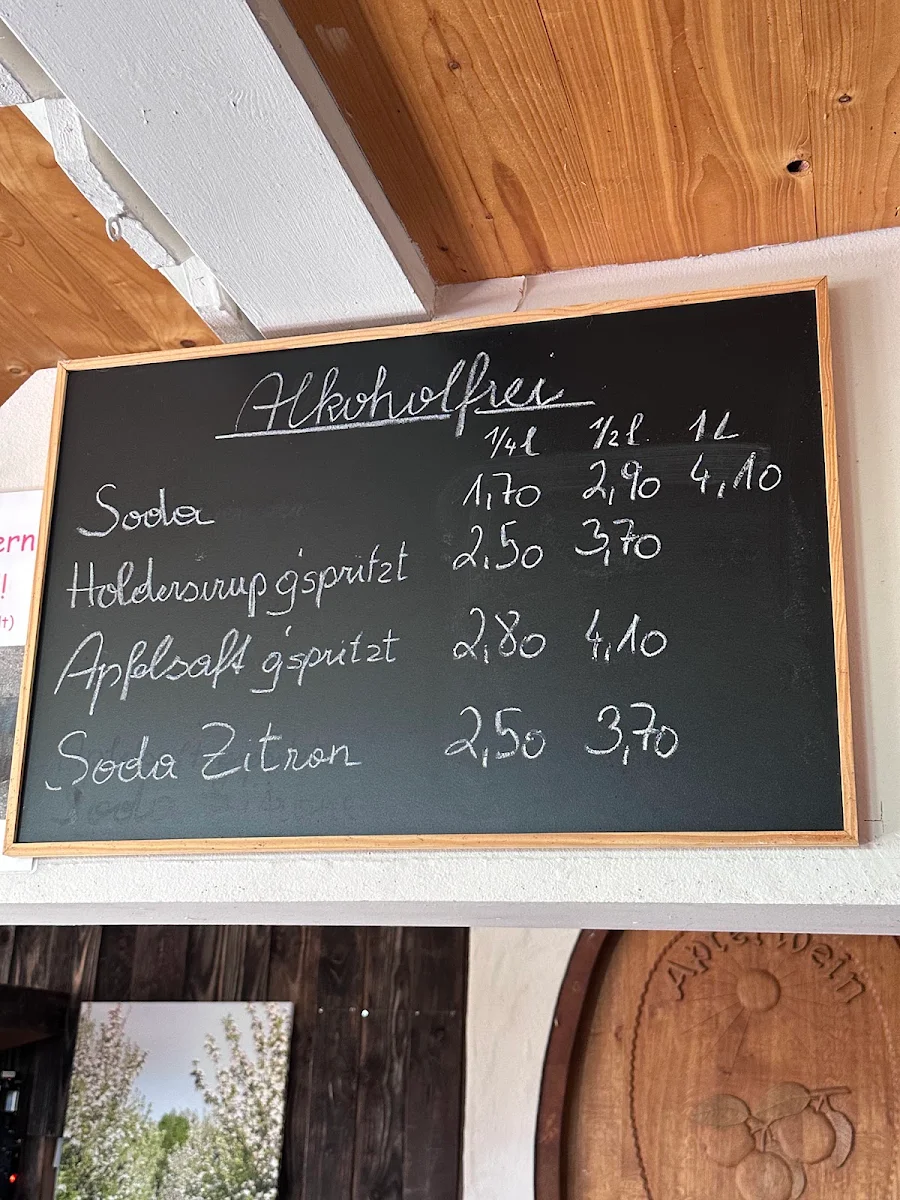 Alkoholfrei
1/4l 1/2l. 1L
Soda 1,70 2,90 4,10
Holdersirup g'spritzt 2,50 3,70
Apfelsaft g'spritzt 2,80 4,10
Soda Zitron 2,50 3,70
ern
!
lt)
Apfelwein